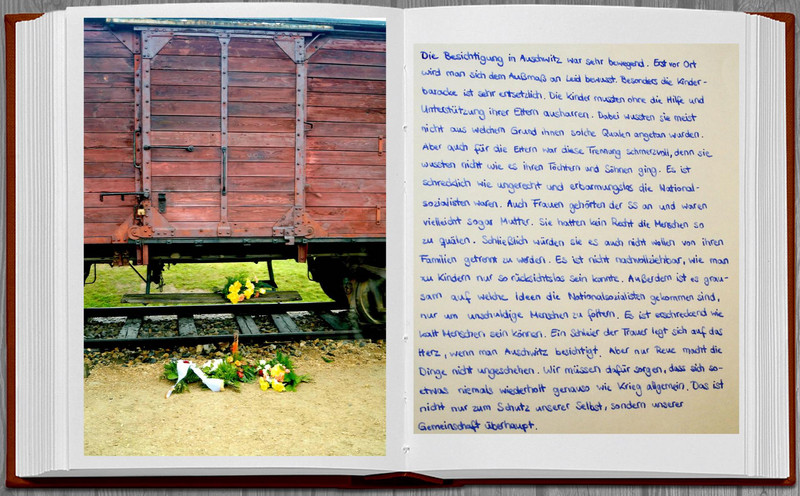 Die Besichtigung in Auschwitz war sehr bewegend. Erst vor Ort
wird man sich dem Außmaß an Leid bewusst. Besonders die Kinder-
baracke ist sehr entsetzlich. Die Kinder mussten ohne die Hilfe und
Unterstützung ihrer Eltern ausharren. Dabei wussten sie meist
nicht aus welchem Grund ihnen solche Qualen angetan wurden.
Aber auch für die Eltern war diese Trennung schmerzvoll, denn sie
wussten nicht wie es ihren Töchtern und Söhnen ging. Es ist
schrecklich wie ungerecht und erbarmungslos die National-
sozialisten waren. Auch Frauen gehörten der SS an und waren
vielleicht sogar Mutter. Sie hatten kein Recht die Menschen so
zu quälen. Schließlich würden sie es auch nicht wollen von ihren
Familien getrennt zu werden. Es ist nicht nachvollziehbar, wie man
zu Kindern nur so rücksichtslos sein konnte. Außerdem ist es grau-
sam auf welche Ideen die Nationalsozialisten gekommen sind,
nur um unschuldige Menschen zu foltern. Es ist erschreckend wie
kalt Menschen sein können. Ein Schleier der Trauer legt sich auf das
Herz, wenn man Auschwitz besichtigt. Aber nur Reue macht die
Dinge nicht ungeschehen. Wir müssen dafür sorgen, dass sich so-
etwas niemals wiederholt genauso wie Krieg allgemein. Das ist
nicht nur zum Schutz unserer Selbst, sondern unserer
Gemeinschaft überhaupt.